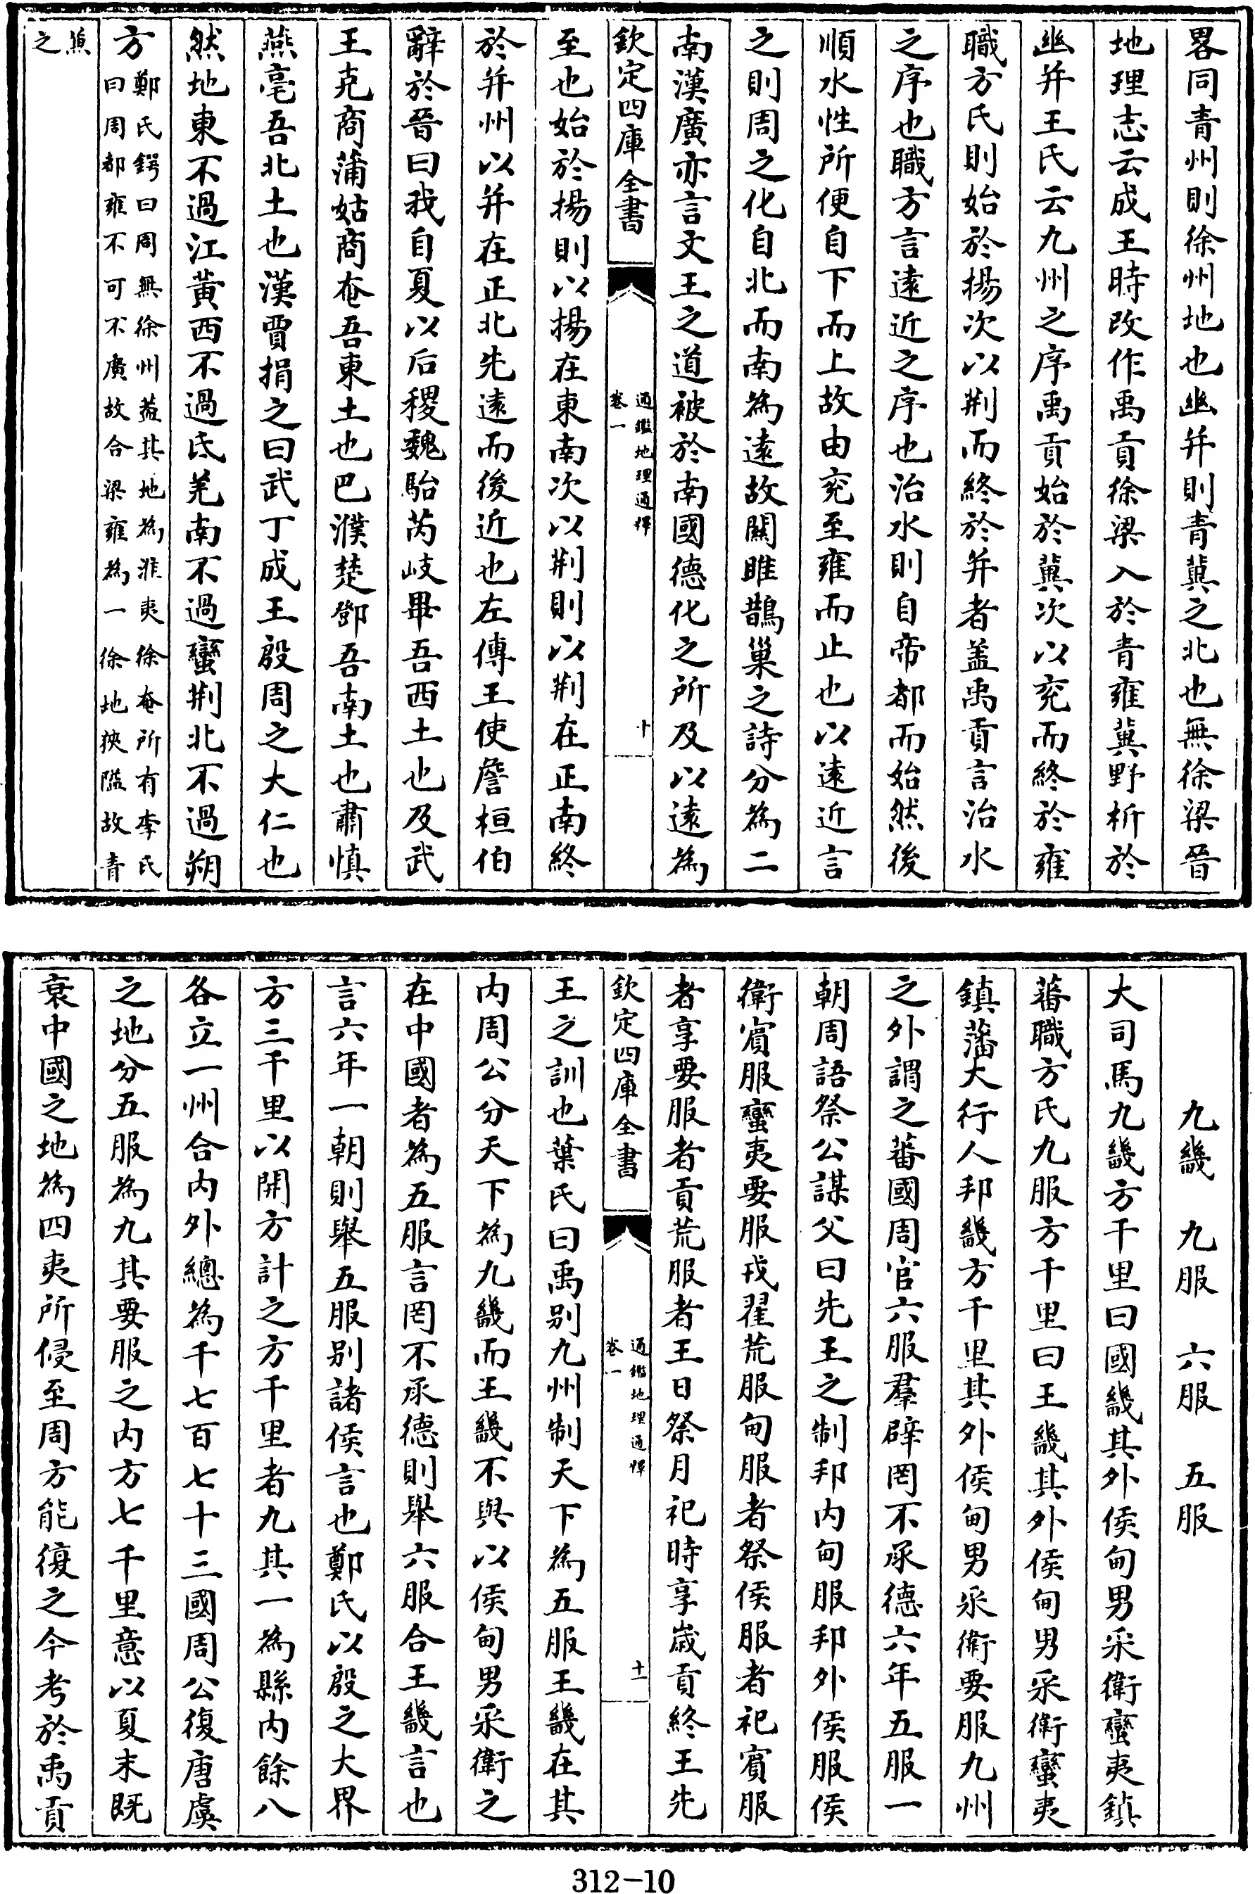 畧同青州則徐州地也幽并則青冀之北也無徐梁晉
地理志云成王時改作禹貢徐梁入於青雍冀野析於
幽并王氏云九州之序禹貢始於冀次以兖而終於雍
職方氏則始於揚次以荆而終於并者盖禹貢言治水
之序也職方言逺近之序也治水則自帝都而始然後
順水性所便自下而上故由兖至雍而止也以逺近言
之則周之化自北而南為逺故關雎鵲巢之詩分為二
南漢廣亦言文王之道被於南國德化之所及以逺為
欽定四庫全書
通鑑地理通釋
卷一
十
至也始於揚則以揚在東南次以荆則以荆在正南終
於并州以并在正北先逺而後近也左傳王使詹桓伯
辭於晉曰我自夏以后稷魏駘芮岐畢吾西土也及武
王克商蒲姑商奄吾東土也巴濮楚鄧吾南土也肅慎
燕亳吾北土也漢賈捐之曰武丁成王殷周之大仁也
然地東不過江黄西不過氐羌南不過蠻荆北不過朔
方鄭氏鍔曰周無徐州葢其地為淮夷徐奄所有李氏
曰周都雍不可不廣故合梁雍為一徐地狹隘故青
兼
之
九畿　九服　六服　五服
大司馬九畿方千里曰國畿其外侯甸男采衛蠻夷鎮
蕃職方氏九服方千里曰王畿其外侯甸男采衛蠻夷
鎮藩大行人邦畿方千里其外侯甸男采衛要服九州
之外謂之蕃國周官六服羣辟罔不承德六年五服一
朝周語祭公謀父曰先王之制邦内甸服邦外侯服侯
衛賓服蠻夷要服戎翟荒服甸服者祭侯服者祀賓服
者享要服者貢荒服者王日祭月祀時享歲貢終王先
欽定四庫全書
通鑑地理通釋
卷一
十一
王之訓也葉氏曰禹别九州制天下為五服王畿在其
内周公分天下為九畿而王畿不與以侯甸男采衛之
在中國者為五服言罔不承德則舉六服合王畿言也
言六年一朝則舉五服别諸侯言也鄭氏以殷之大界
方三千里以開方計之方千里者九其一為縣内餘八
各立一州合内外總為千七百七十三國周公復唐虞
之地分五服為九其要服之内方七千里意以夏末既
衰中國之地為四夷所侵至周方能復之今考於禹貢
312-10